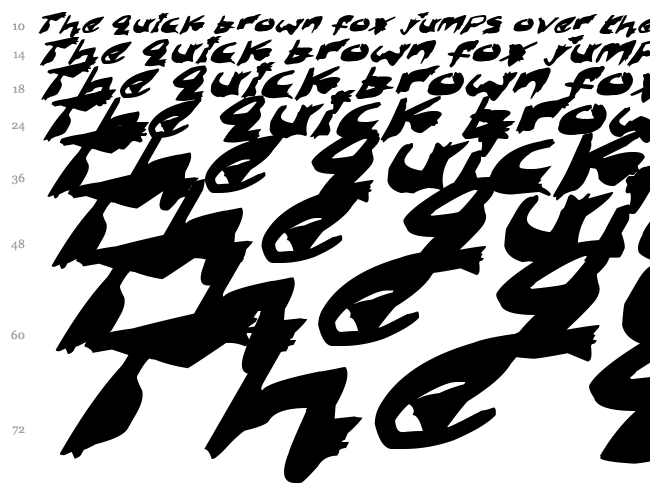 10 The quick brown fox jumps over the
14 The quick brown fox jump
18 The quick brown fox
24 The quick brow
36 The quick
48 The qui
60 The q
72 The q